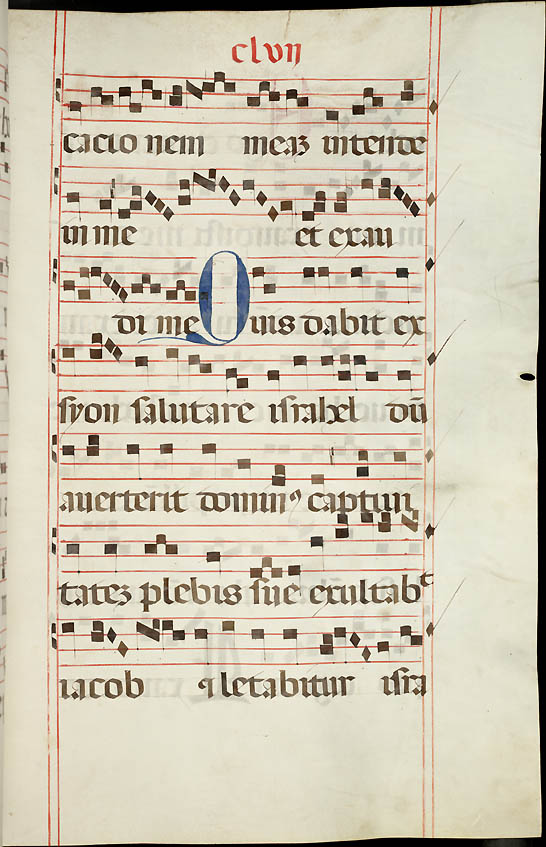 clvii
cacionem meaz intende
in me et exau
di me Quis dabit ex
syon salutare israhel dū
auerterit dominꝰ captiui
tatez plebis sue exultabᵗ
iacob ⁊ letabitur isra